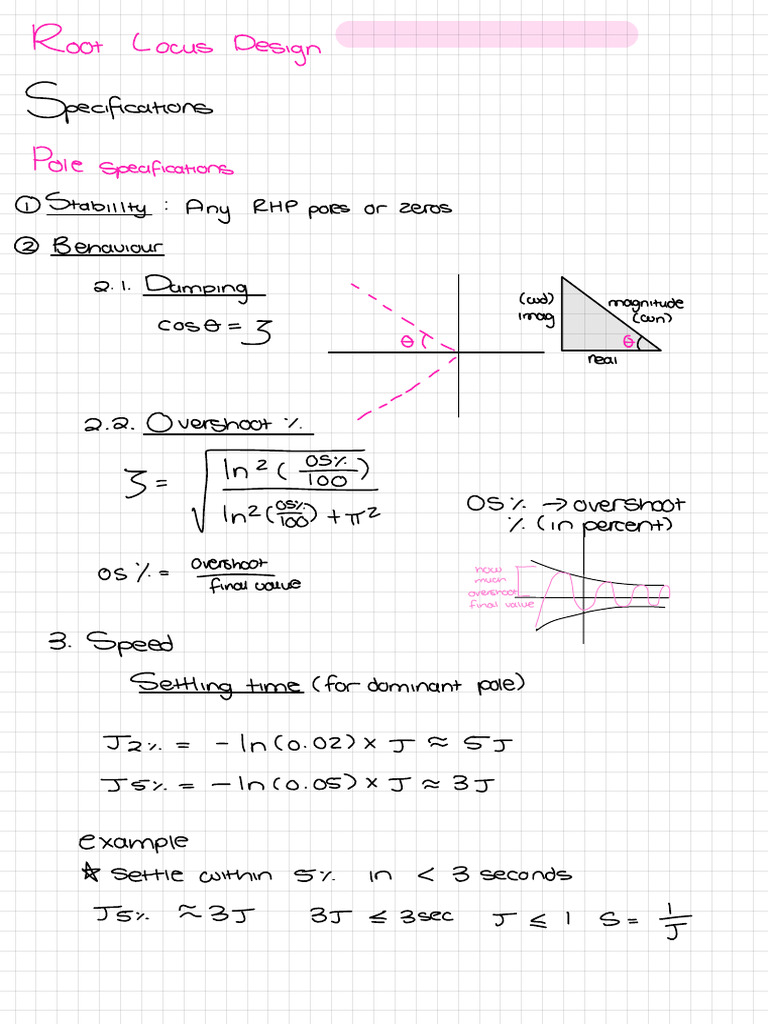 Root Locus Design
Specifications
Pole specifications
① Stability : Any RHP poles or zeros
② Behaviour
2.1. Damping
cosθ = ζ
θ
(ωd)
imag
magnitude
(ωn)
θ
real
2.2. Overshoot %
ζ = √(ln²(OS%/100) / (ln²(OS%/100) + π²))
OS% = overshoot / final value
OS% → overshoot
% (in percent)
how
much
overshoot
final value
3. Speed
Settling time (for dominant pole)
J2% = -ln(0.02) × J ≈ 5J
J5% = -ln(0.05) × J ≈ 3J
example
☆ settle within 5% in < 3 seconds
J5% ≈ 3J 3J ≤ 3sec J ≤ 1 S = 1/J